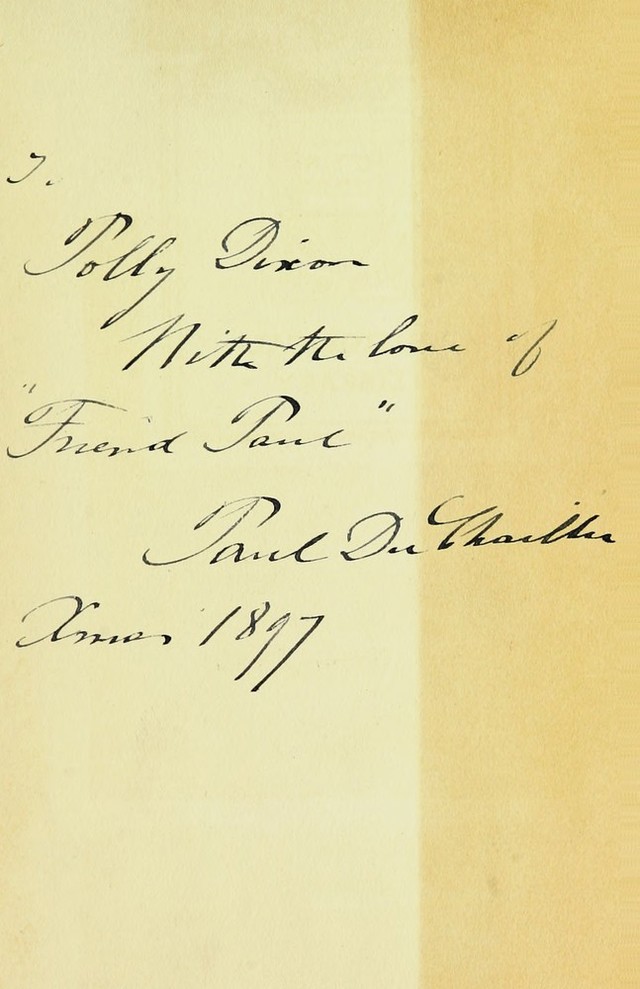 To
Polly Dixon
With the love of
"Friend Paul"
Paul Du Chaillu
Xmas 1897